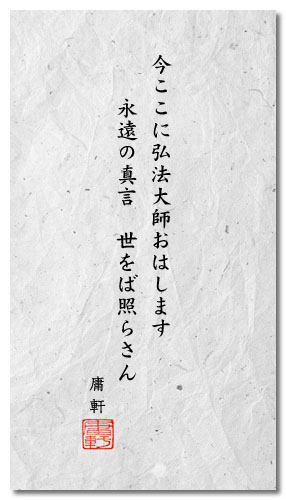 今ここに弘法大師おはします
永遠の真言　世をば照らさん
庸軒
庸軒